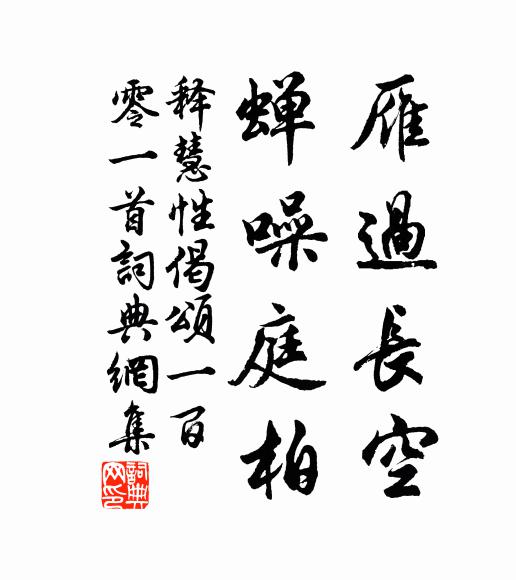 雁過長空
蝉噪庭柏
释慧性偈頌一百
零一首詞典網集
詞典网印